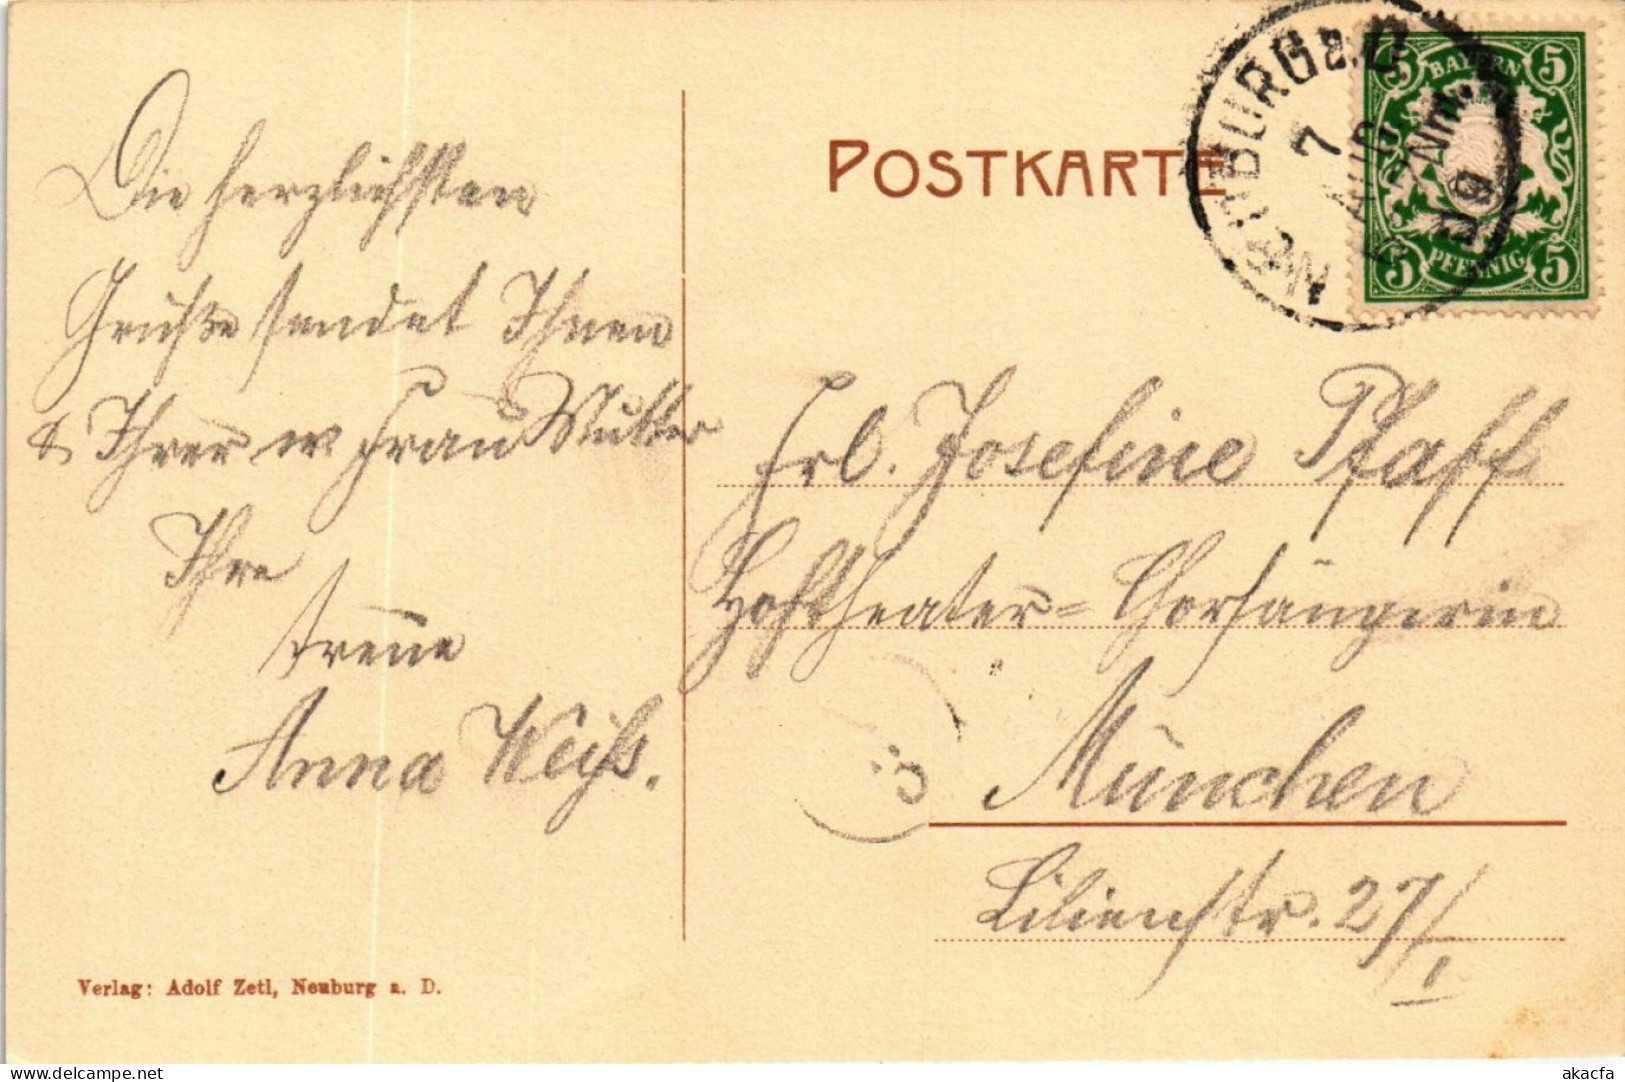 Die herzlichsten
Grüße sendet Ihnen
& Ihrer w Frau Mutter
Ihre
treue
Anna Weiß.
Verlag: Adolf Zetl, Neuburg a. D.
POSTKARTE
NEUBURG a. D
7
AUG
Nm.
09
5 BAYERN 5
5 PFENNIG 5
Frl. Josefine Pfaff
Hoftheater-Chorsängerin
München
Lilienstr. 27/I
akacfa
delcampe.net